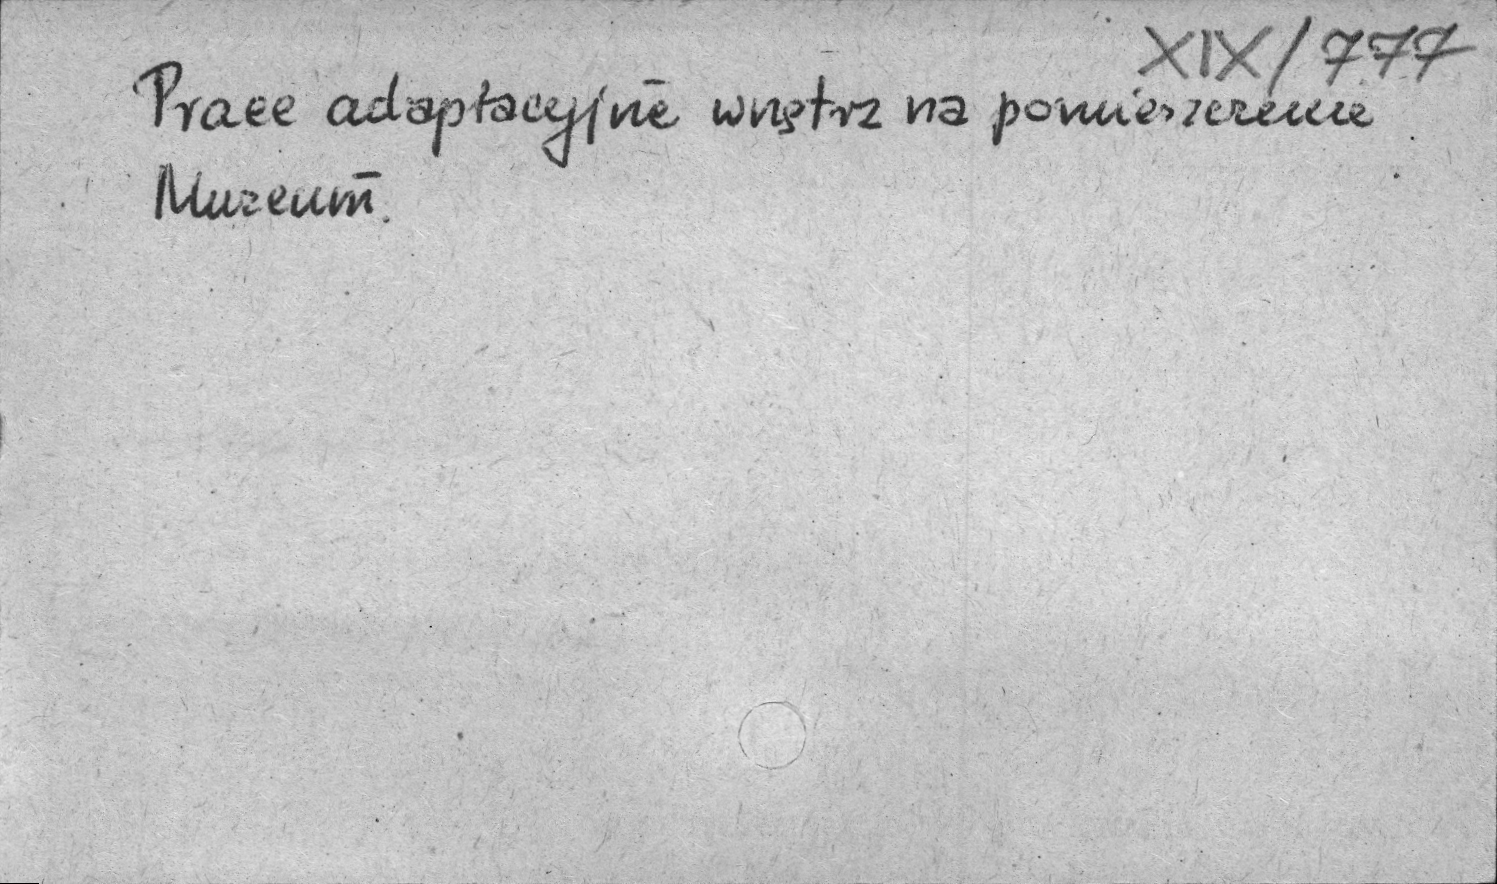 XIX/777
Prace adaptacyjne wnętrz na pomieszczenie
Muzeum.